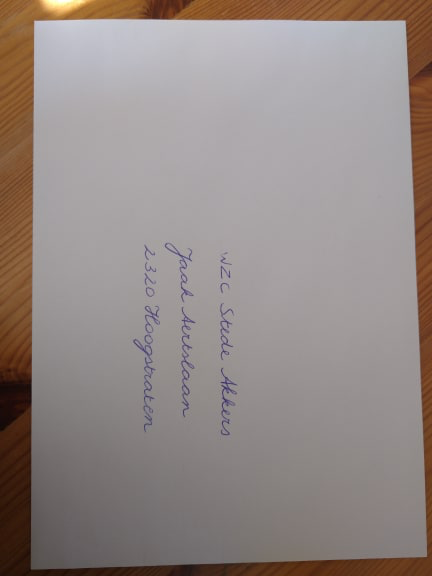 WZC Stede Akkers
Jaak Aertslaan
2320 Hoogstraten